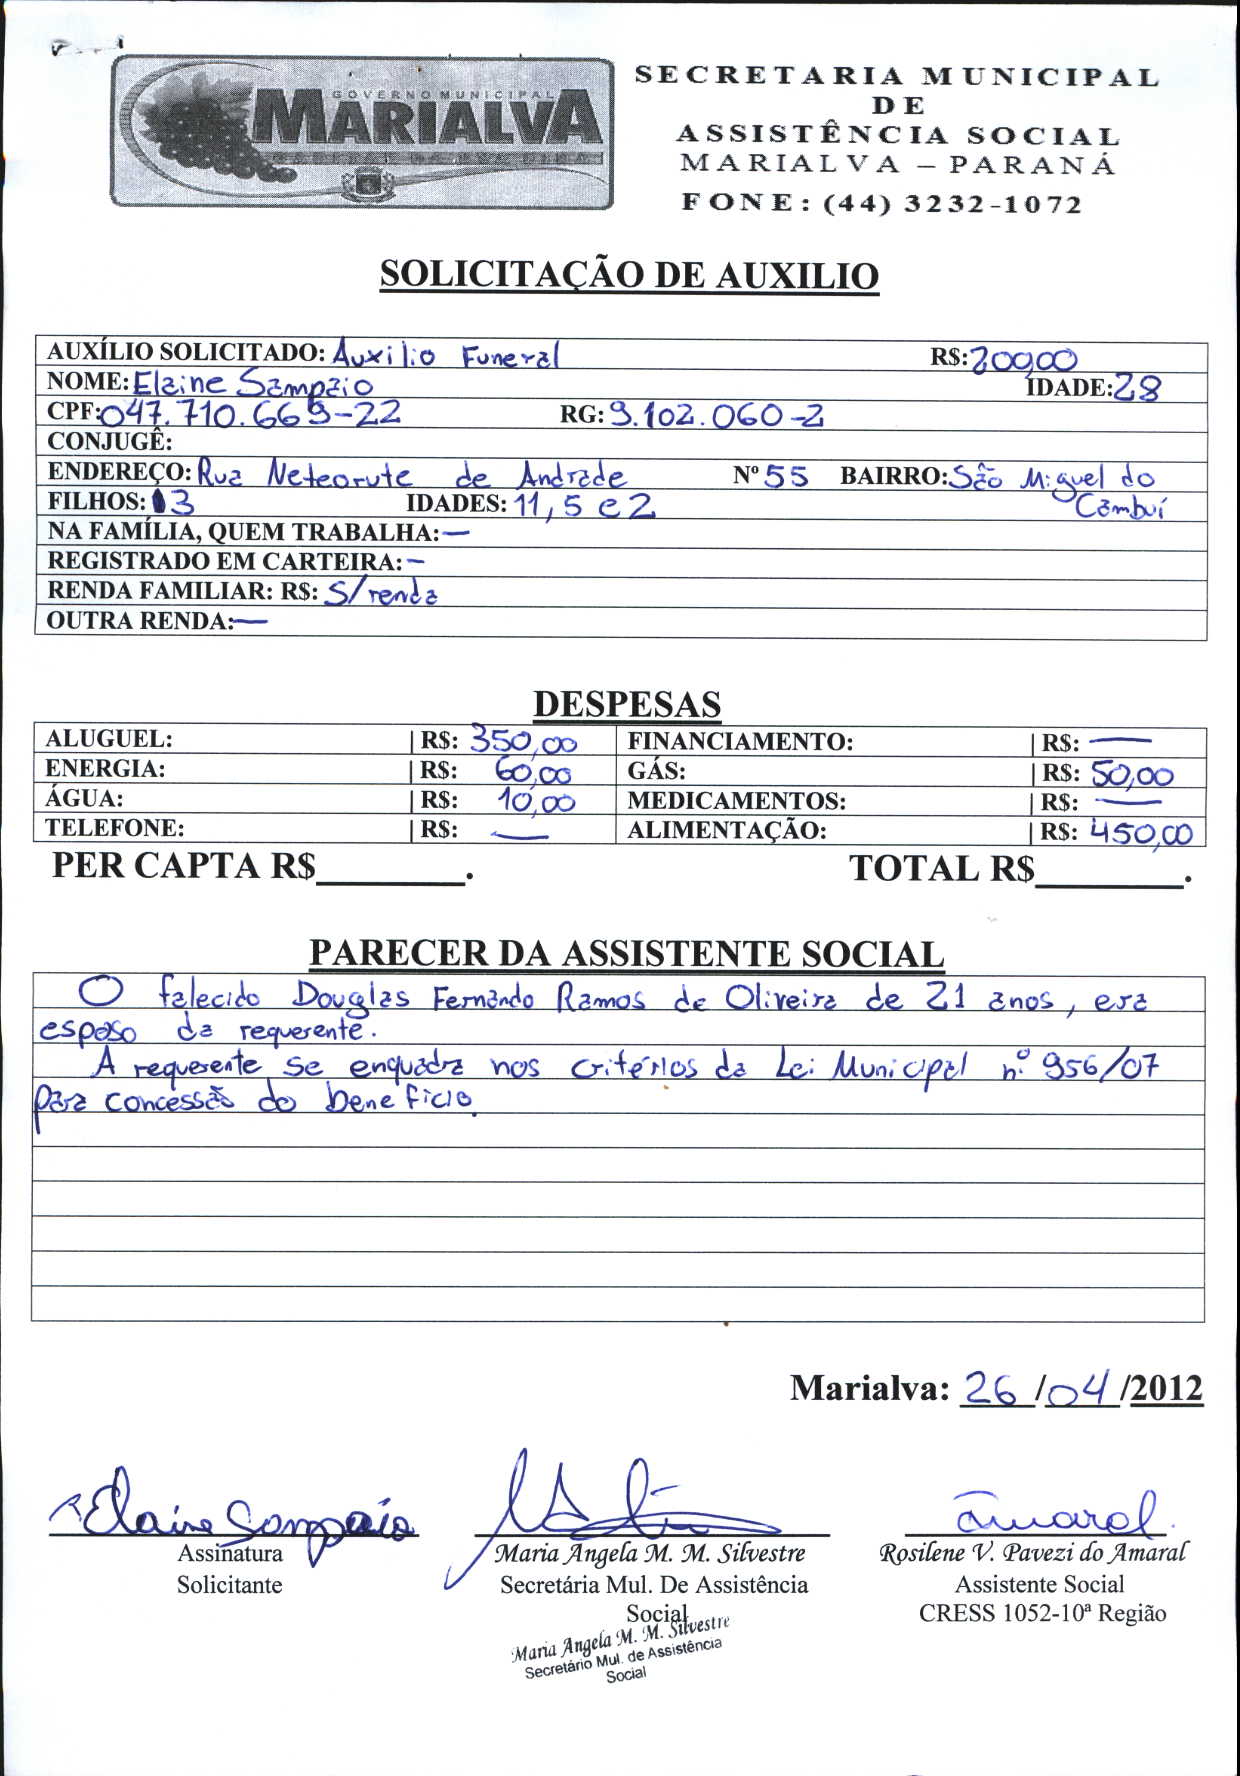 GOVERNO MUNICIPAL
MARIALVA
SECRETARIA MUNICIPAL
DE
ASSISTÊNCIA SOCIAL
MARIALVA – PARANÁ
FONE: (44) 3232-1072
SOLICITAÇÃO DE AUXILIO
AUXÍLIO SOLICITADO: Auxilio Funeral R$: 200,00
NOME: Elaine Sampaio IDADE: 28
CPF: 047.710.669-22 RG: 9.102.060-2
CONJUGÊ:
ENDEREÇO: Rua Neteorute de Andrade Nº 55 BAIRRO: São Miguel do
Cambuí
FILHOS: 3 IDADES: 11, 5 e 2
NA FAMÍLIA, QUEM TRABALHA: —
REGISTRADO EM CARTEIRA: –
RENDA FAMILIAR: R$: S/ renda
OUTRA RENDA: —
DESPESAS
ALUGUEL: | R$: 350,00 FINANCIAMENTO: | R$: —
ENERGIA: | R$: 60,00 GÁS: | R$: 50,00
ÁGUA: | R$: 10,00 MEDICAMENTOS: | R$: —
TELEFONE: | R$: — ALIMENTAÇÃO: | R$: 450,00
PER CAPTA R$________. TOTAL R$________.
PARECER DA ASSISTENTE SOCIAL
O falecido Douglas Fernando Ramos de Oliveira de 21 anos, era
esposo da requerente.
A requerente se enquadra nos critérios da Lei Municipal nº 956/07
para concessão do beneficio.
Marialva: 26/04/2012
Elaine Sampaio
Amaral
Assinatura
Solicitante
Maria Angela M. M. Silvestre
Secretária Mul. De Assistência
Social
Rosilene V. Pavezi do Amaral
Assistente Social
CRESS 1052-10ª Região
Maria Angela M. M. Silvestre
Secretário Mul. de Assistência
Social